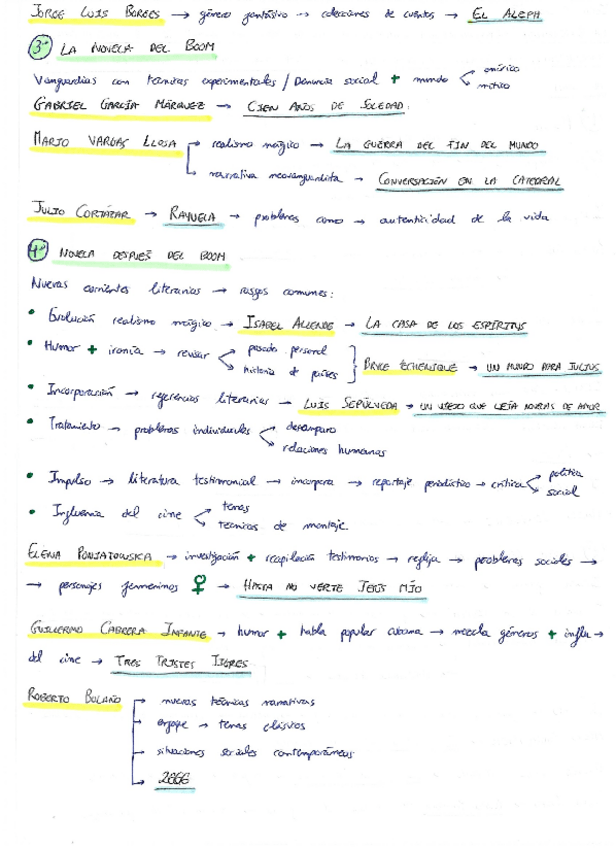 JORGE LUIS BORGES → género fantástico → colecciones de cuentos → EL ALEPH
3º LA NOVELA DEL BOOM
Vanguardias con técnicas experimentales / Denuncia social + mundo < onírico
mítico
GABRIEL GARCÍA MÁRQUEZ → CIEN AÑOS DE SOLEDAD.
MARIO VARGAS LLOSA → realismo mágico → LA GUERRA DEL FIN DEL MUNDO
→ narrativa neovanguardista → CONVERSACIÓN EN LA CATEDRAL
JULIO CORTÁZAR → RAYUELA → problemas como → autenticidad de la vida
4º NOVELA DESPUÉS DEL BOOM
Nuevas corrientes literarias → rasgos comunes:
• Evolución realismo mágico → ISABEL ALLENDE → LA CASA DE LOS ESPÍRITUS
• Humor + ironía → revisar < pasado personal
historia de países } BRYCE ECHENIQUE → UN MUNDO PARA JULIUS
• Incorporación → referencias literarias → LUIS SEPÚLVEDA → UN VIEJO QUE LEÍA NOVELAS DE AMOR
• Tratamiento → problemas individuales < desamparo
relaciones humanas
• Impulso → literatura testimonial → incorpora → reportaje periodístico → crítica < política
social
• Influencia del cine < temas
técnicas de montaje.
ELENA PONIATOWSKA → investigación + recopilación testimonios → refleja → problemas sociales →
→ personajes femeninos ♀ → HASTA NO VERTE JESÚS MÍO
GUILLERMO CABRERA INFANTE → humor + habla popular cubana → mezcla géneros + influ →
del cine → TRES TRISTES TIGRES
ROBERTO BOLAÑO → nuevas técnicas narrativas
→ temas clásicos
→ situaciones sociales contemporáneas
→ 2666